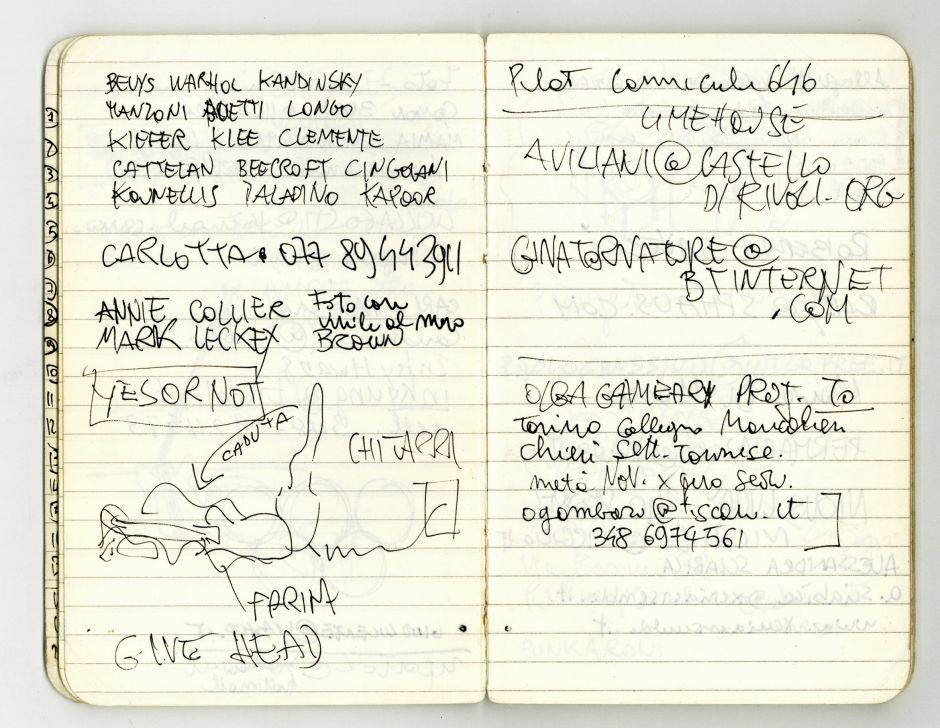 BEUYS WARHOL KANDINSKY
MANZONI BOETTI LONGO
KIEFER KLEE CLEMENTE
CATTELAN BEECROFT CINGOLANI
KOUNELLIS PALADINO KAPOOR
CARLOTTA 077 89443911
ANNIE COLLIER
MARK LECKEY
Foto con
vinile al muro
BROWN
YES OR NOT
CADUTA
CHITARRA
FARINA
GIVE HEAD
Pilot
6616
LIMEHOUSE
AVILIANI@CASTELLO
DIRIVOLI.ORG
GINATORNATORE@
BTINTERNET
.COM
OLGA GAMBARI PROJ. TO
Torino Collegno Moncalieri
chieri Sett. Torinese.
metà Nov. x
ogambari@tiscali.it
348 6974561